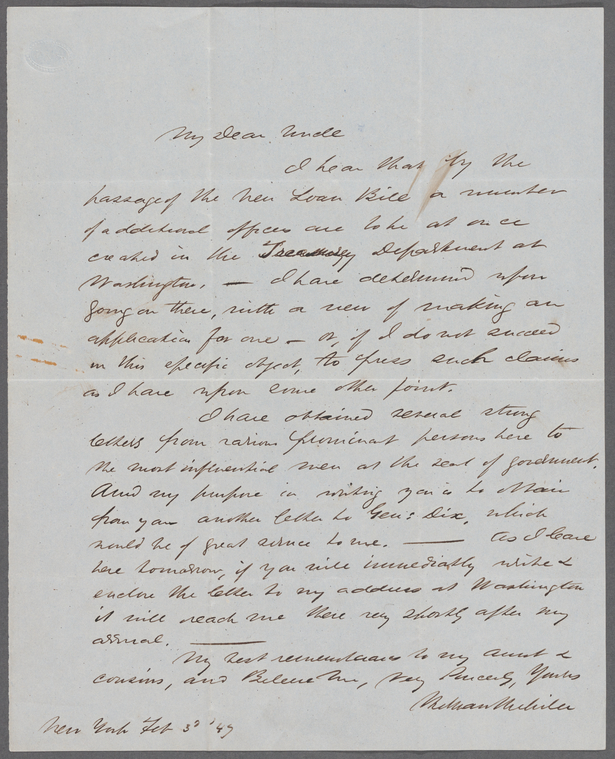 My Dear Uncle
I hear that by the
passage of the New Loan Bill a number
of additional offices are to be at once
created in the Treasury Department at
Washington. — I have determined upon
going on there, with a view of making an
application for one — or, if I do not succeed
in this specific object, to press such claims
as I have upon some other point.
I have obtained several strong
letters from various prominent persons here to
the most influential men at the seat of government.
And my purpose in writing you is to obtain
from you another letter to Genl: Dix, which
would be of great service to me. — As I leave
here tomorrow, if you will immediately write &
enclose the letter to my address at Washington
it will reach me there very shortly after my
arrival. —
My best remembrances to my aunt &
cousins, and Believe me, Very Sincerely, Yours
New York Feb 3d '47